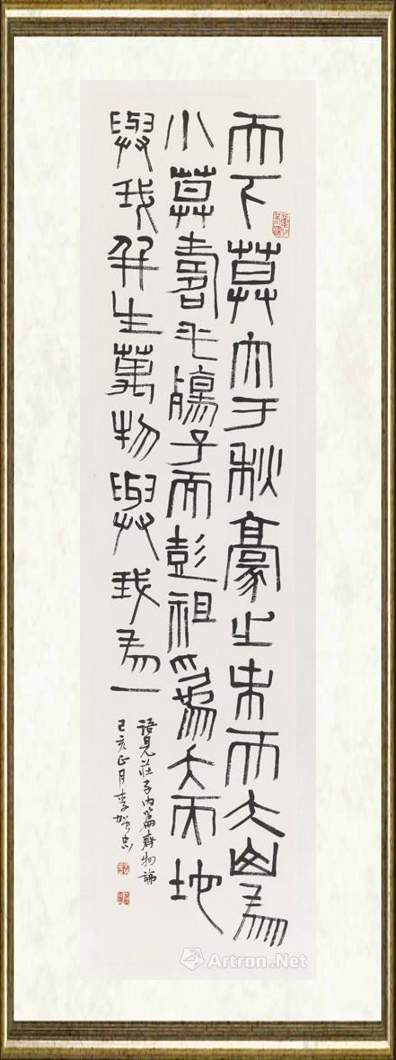 天下莫大于秋豪之末而大山為
小莫壽乎殤子而彭祖為夭天地
與我并生萬物與我為一
語見莊子內篇齊物論
己亥正月李賀忠
Artron.Net